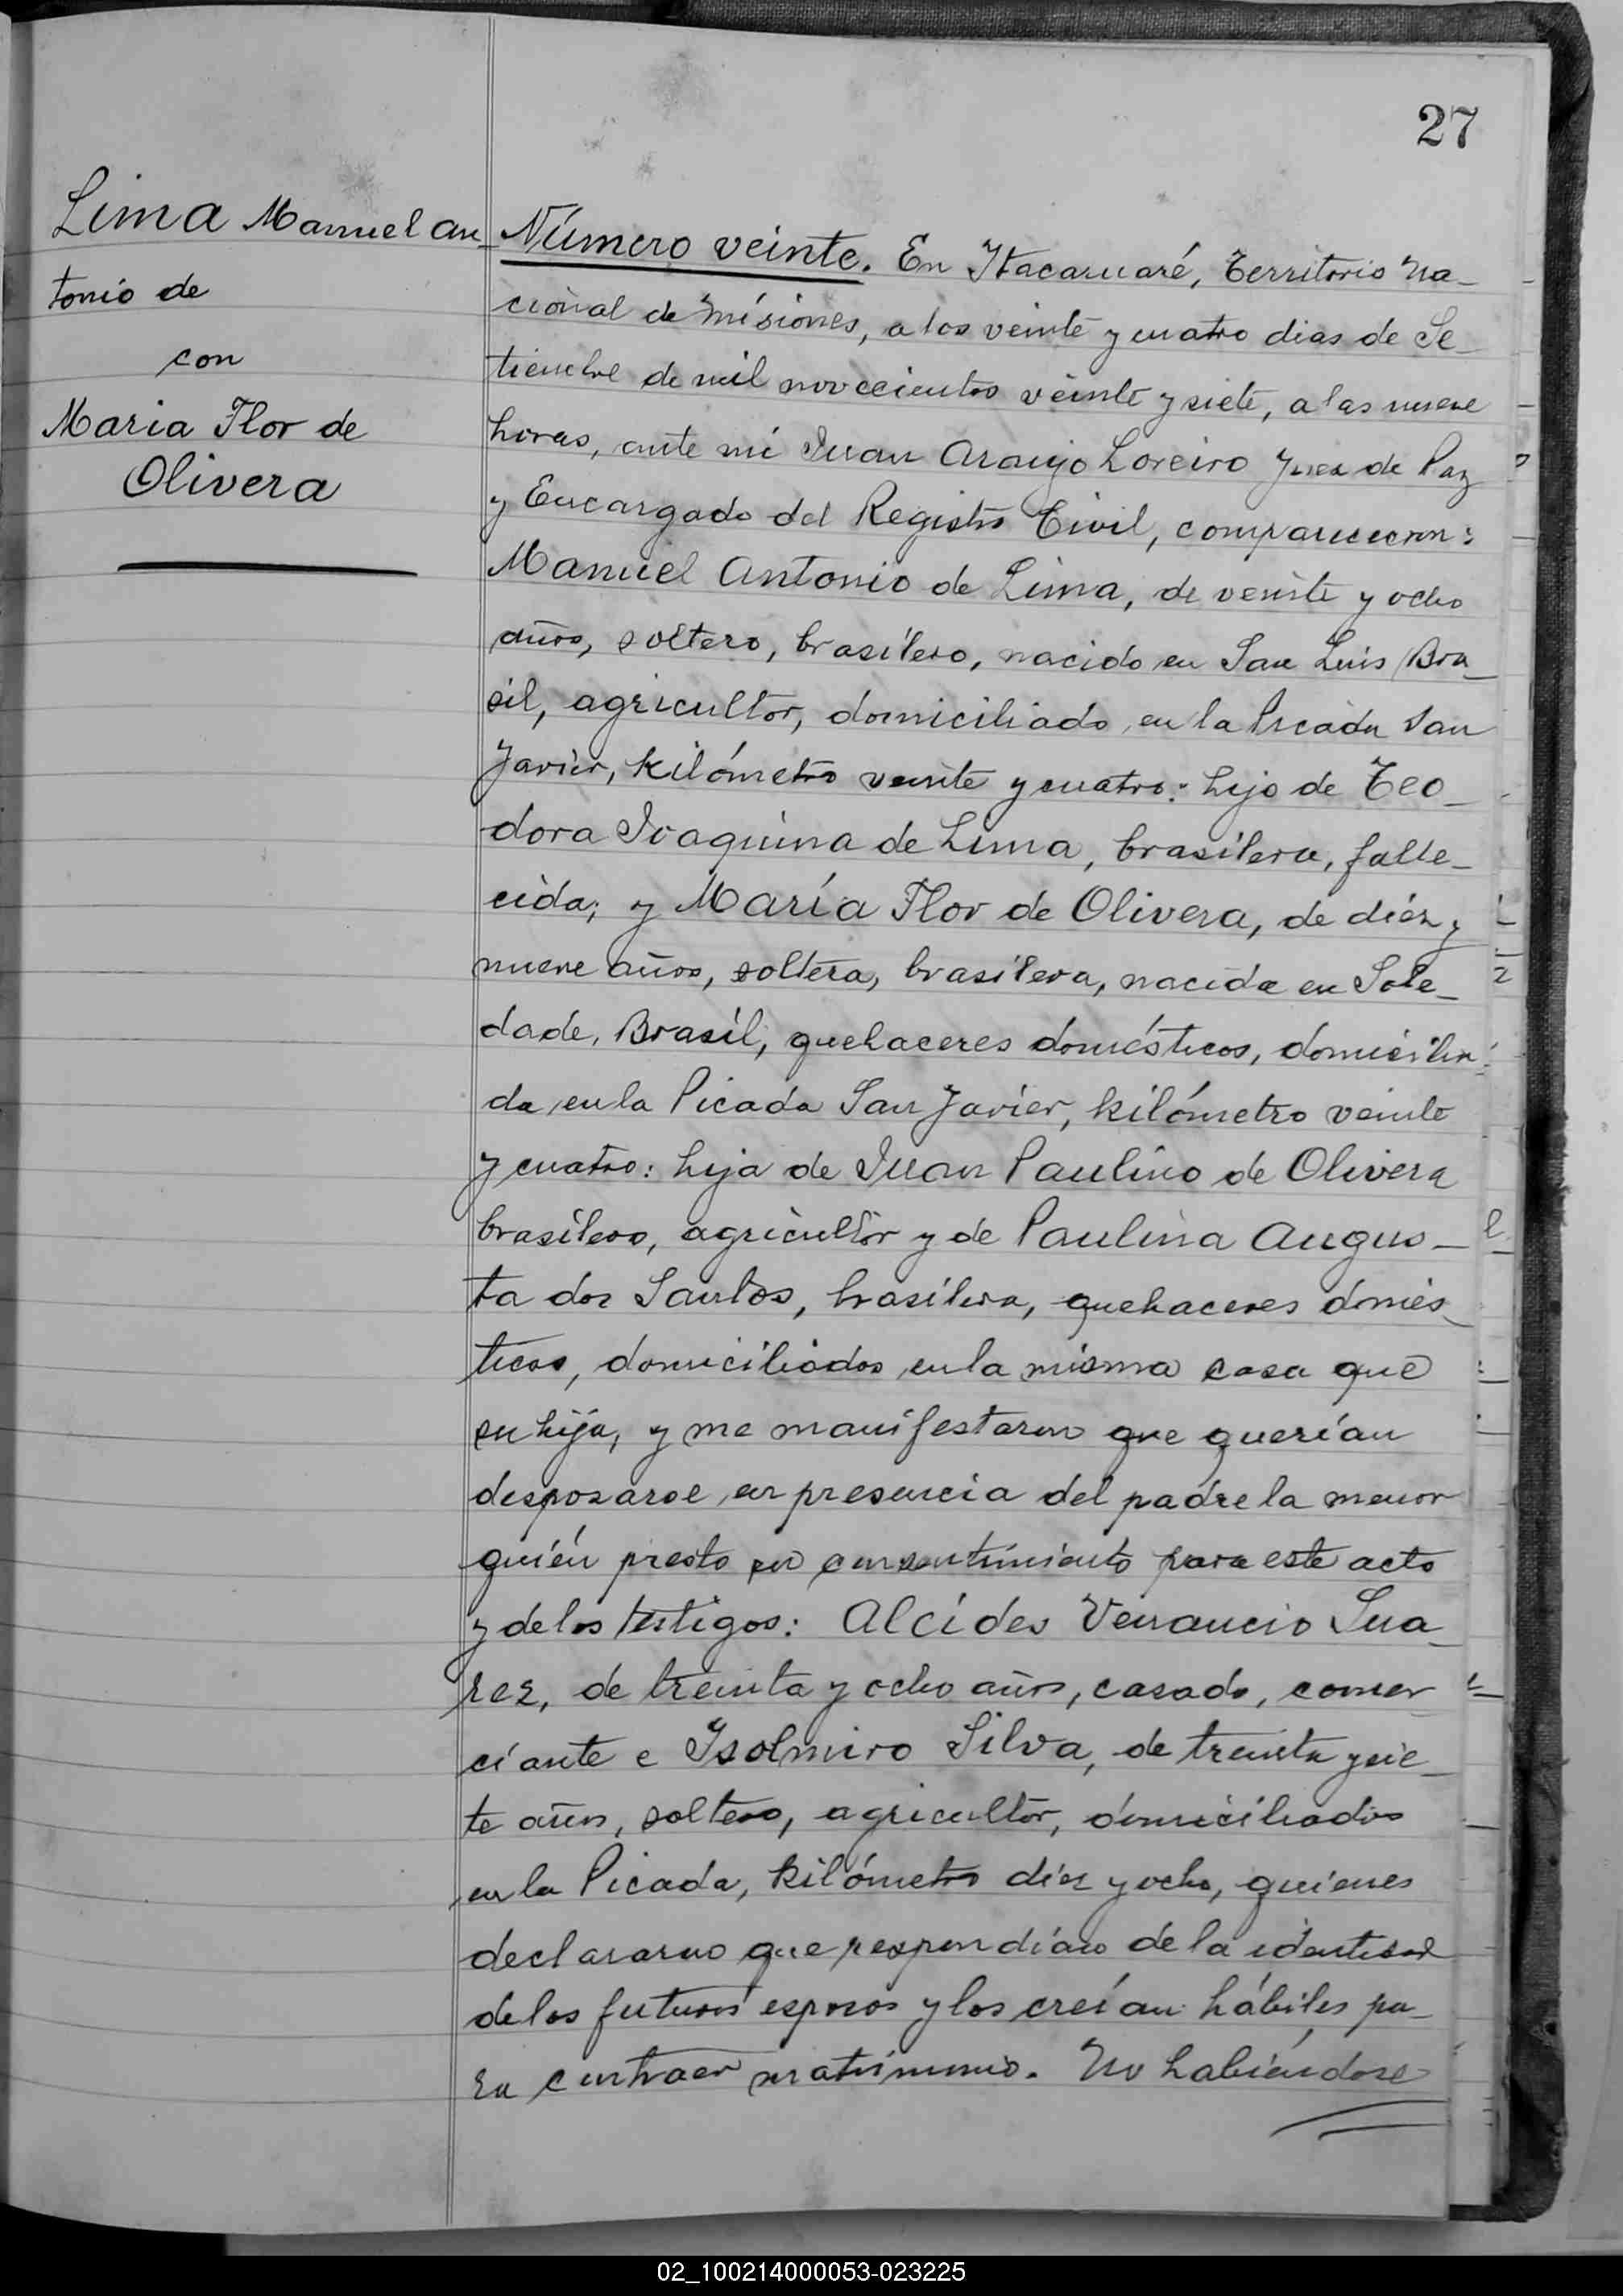 27
Lima Manuel An-
tonio de
con
Maria Flor de
Olivera
Número veinte. En Itacaruaré, Territorio Na-
cional de Misiones, a los veinte y cuatro dias de Se-
tiembre de mil novecientos veinte y siete, a las nueve
horas, ante mi Juan Araujo Loreiro Juez de Paz
y Encargado del Registro Civil, comparecieron:
Manuel Antonio de Lima, de veinte y ocho
años, soltero, brasilero, nacido en San Luis Bra-
sil, agricultor, domiciliado en la Picada San
Javier, kilómetro veinte y cuatro: hijo de Teo-
dora Joaquina de Lima, brasilera, falle-
cida; y María Flor de Olivera, de diéz y
nueve años, soltera, brasilera, nacida en Sole-
dade, Brasil, quehaceres domésticos, domicilia-
da en la Picada San Javier, kilómetro veinte
y cuatro: hija de Juan Paulino de Olivera
brasilero, agricultor y de Paulina Augus-
ta dos Santos, brasilera, quehaceres domés-
ticos, domiciliados en la misma casa que
su hija, y me manifestaron que querían
desposarse en presencia del padre la menor
quién presto su consentimiento para este acto
y de los testigos: Alcídes Venancio Sua-
rez, de treinta y ocho años, casado, comer-
ciante e Isolmiro Silva, de treinta y sie-
te años, soltero, agricultor, domiciliados
en la Picada, kilómetro diéz y ocho, quienes
declararon que respondían de la identidad
de los futuros esposos y los creían hábiles pa-
ra contraer matrimonio. No habiéndose
02_100214000053-023225